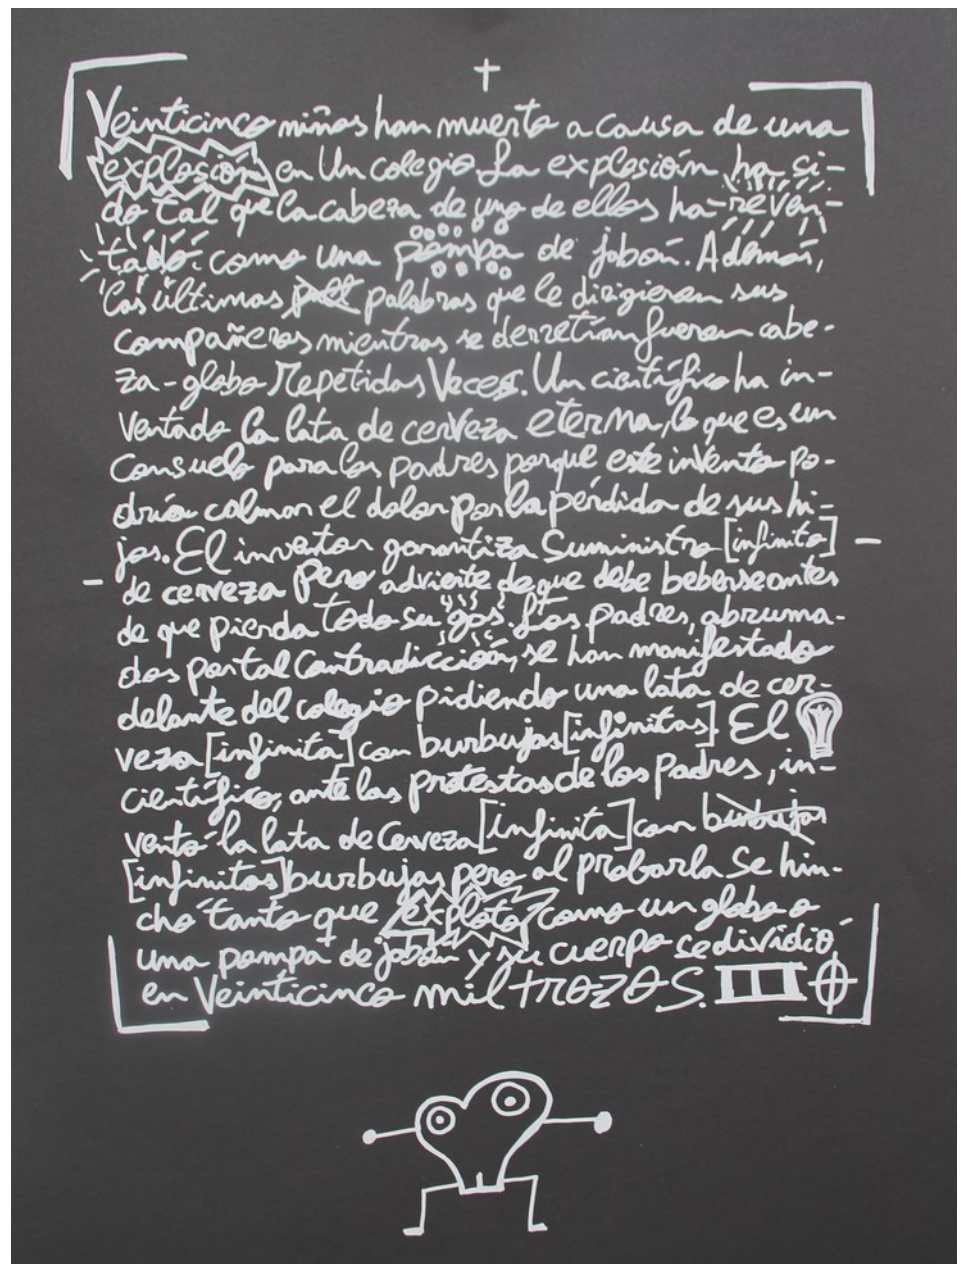 Veinticinco niños han muerto a causa de una
explosión en Un colegio. La explosión ha si-
do tal que la cabeza de uno de ellos ha reven-
tado como una pompa de jabón. Además,
las últimas palabras que le dirigieron sus
compañeros mientras se derretían fueron cabe-
za-globo repetidas Veces. Un científico ha in-
ventado la lata de cerveza eterna, lo que es un
consuelo para los padres porque este invento po-
dría calmar el dolor por la pérdida de sus hi-
jos. El inventor garantiza Suministro [infinito]
de cerveza Pero advierte de que debe beberse antes
de que pierda todo su gas. Los padres, abruma-
dos por tal Contradicción, se han manifestado
delante del colegio pidiendo una lata de cer-
veza [infinita] con burbujas [infinitas]. El
científico, ante las protestas de los Padres, in-
ventó la lata de Cerveza [infinita] con burbujas
[infinitas] burbujas pero al probarla Se hin-
chó tanto que explotó como un globo o
una pompa de jabón y su cuerpo se dividió
en Veinticinco mil trozos. III